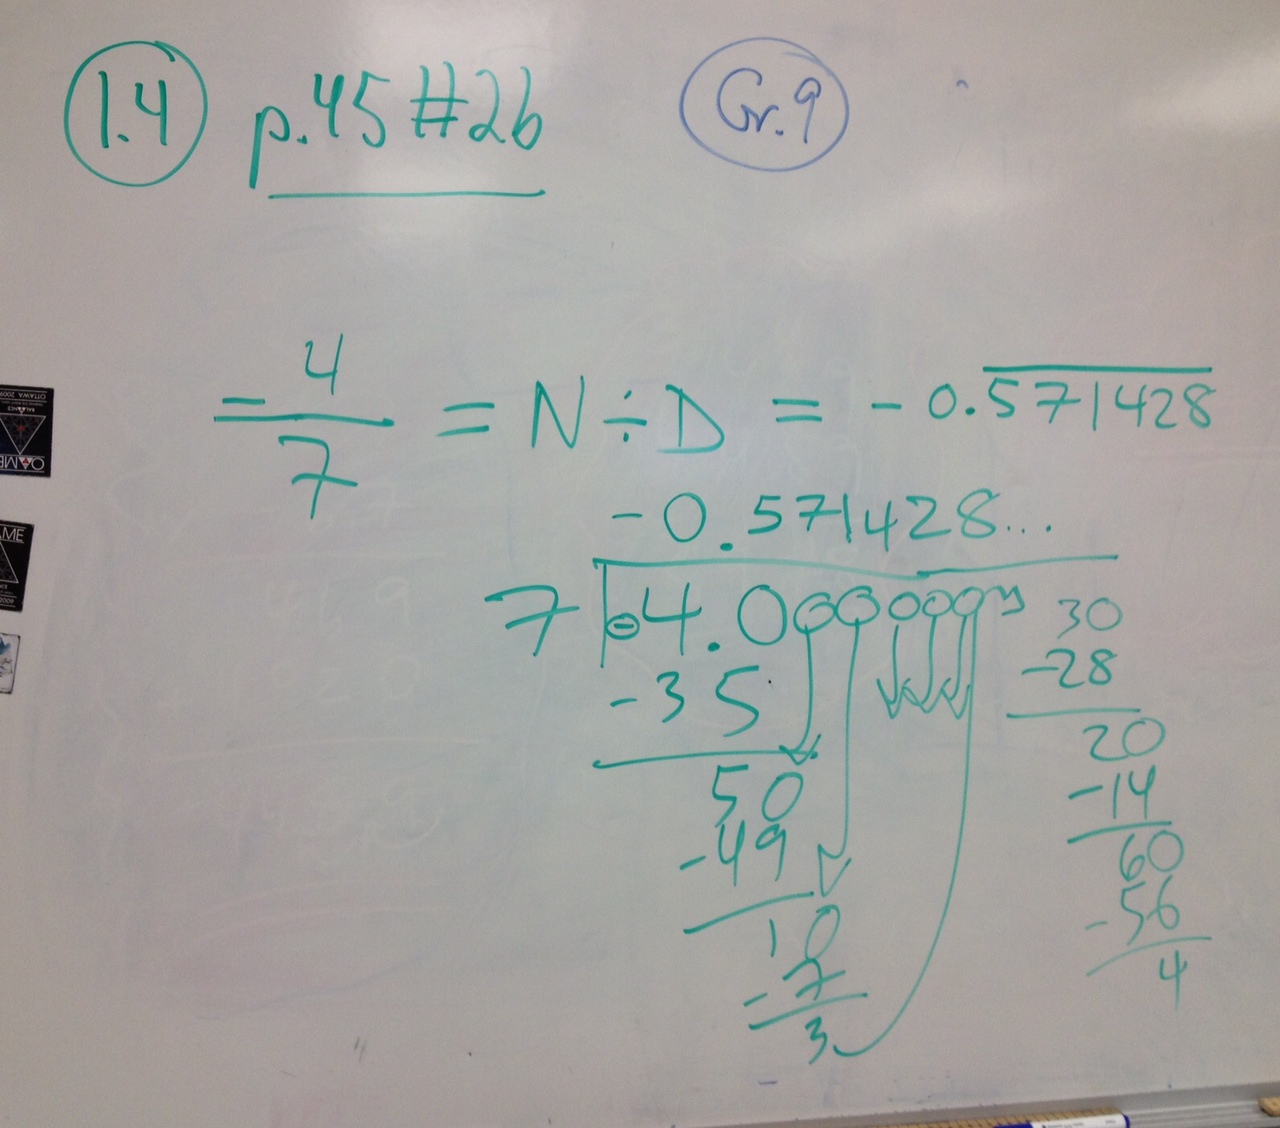 1.4 p.45 #2b Gr.9
-4/7 = N ÷ D = -0.571428
-0.571428...
7 -4.0000000
-35
50
-49
10
-7
3
30
-28
20
-14
60
-56
4
OTTAWA 2009
BALANCE
OAME
AME
2009